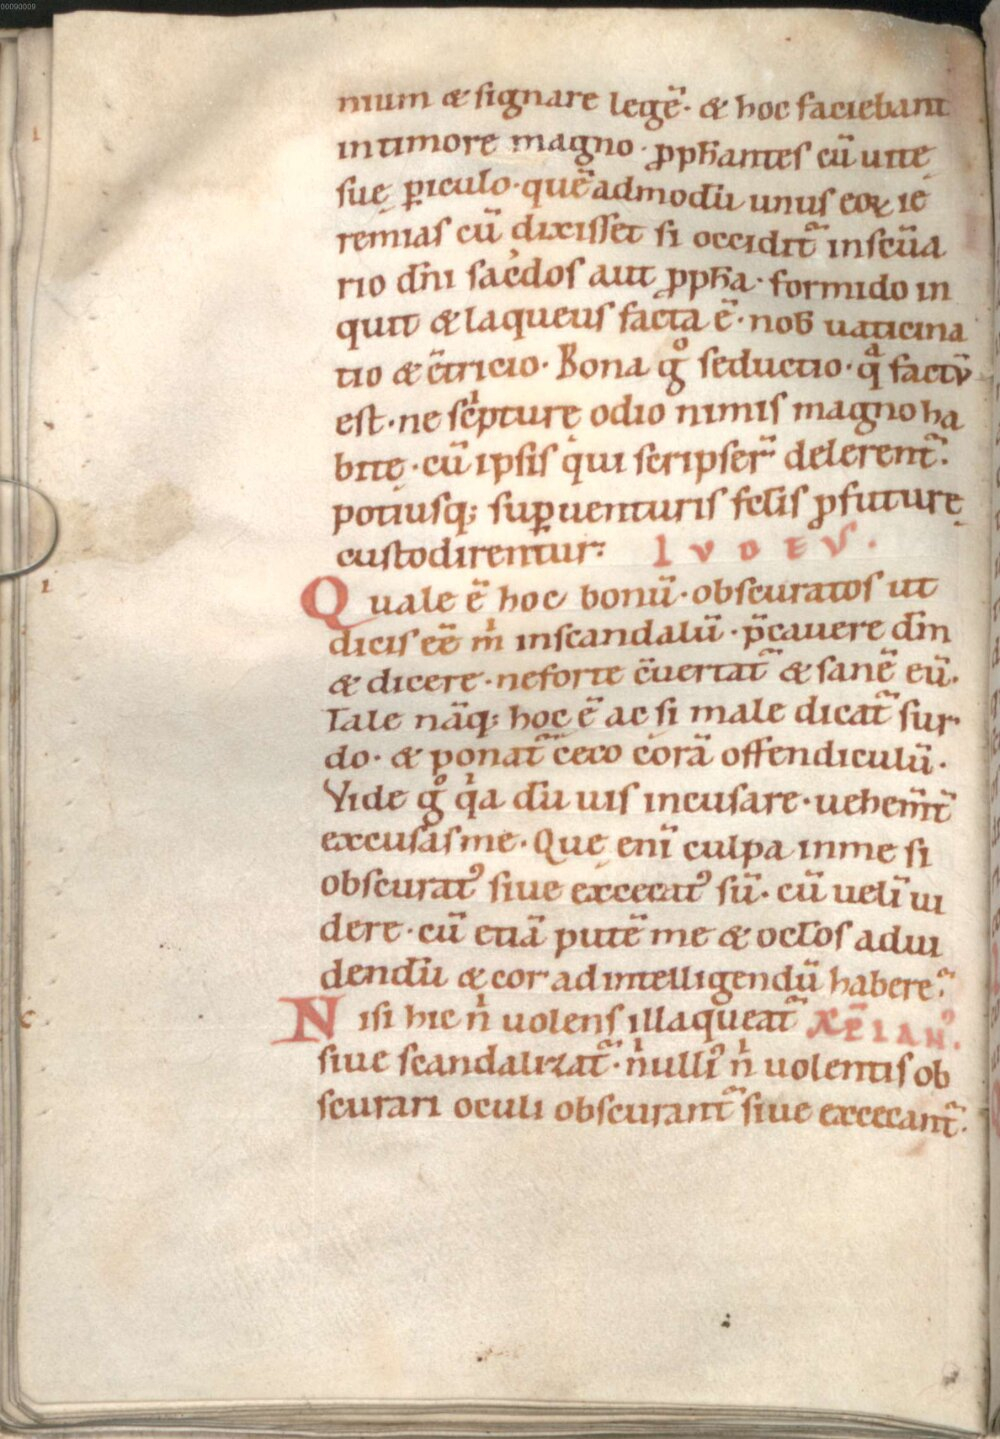 00090009
nium & signare legē· & hoc faciebant
in timore magno· ꝓpħantes cū uitę
suę ꝑiculo· quēadmodū unus eoꝝ ie
remias cū dixisset si occidit᷑ in scūa
rio dn̄i sac̓dos aut ꝓpħa· formido in
quit & laqueus facta ē· nob̄ uaticina
tio & c̄tricio· Bona gͦ seductio· qͣ factū
est· ne sc̓pturę odio nimis magno ha
bitę· cū ipsis qͥui scripser̄ delerent᷑·
potiusq; suꝑuenturis sc̄lis ꝓfuturę
custodirentur· IVDEVS·
Quale ē hoc bonū· obscuratos ut
dicis eē mͥ in scandalū· p̄cauere dn̄m
& dicere· ne forte c̄uertat᷑ & sanē eū·
Tale nāq; hoc ē ac si male dicat᷑ sur
do· & ponat᷑ cęco corā offendiculū·
Vide gͦ qͥa dū uis incusare· uehem̄t᷑
excusas me· Quę enī culpa in me si
obscuratꝰ siue excecatꝰ sū· cū uelī ui
dere· cū etiā putē me & oc̄los ad ui
dendū & cor ad intelligendū habere·
Nisi hic nͥ uolens illaqueat᷑ XP̄IANꝰ·
siue scandalizat᷑· nͥ nullī nͥ uolentis ob
scurari oculi obscurant᷑ siue excecant᷑·